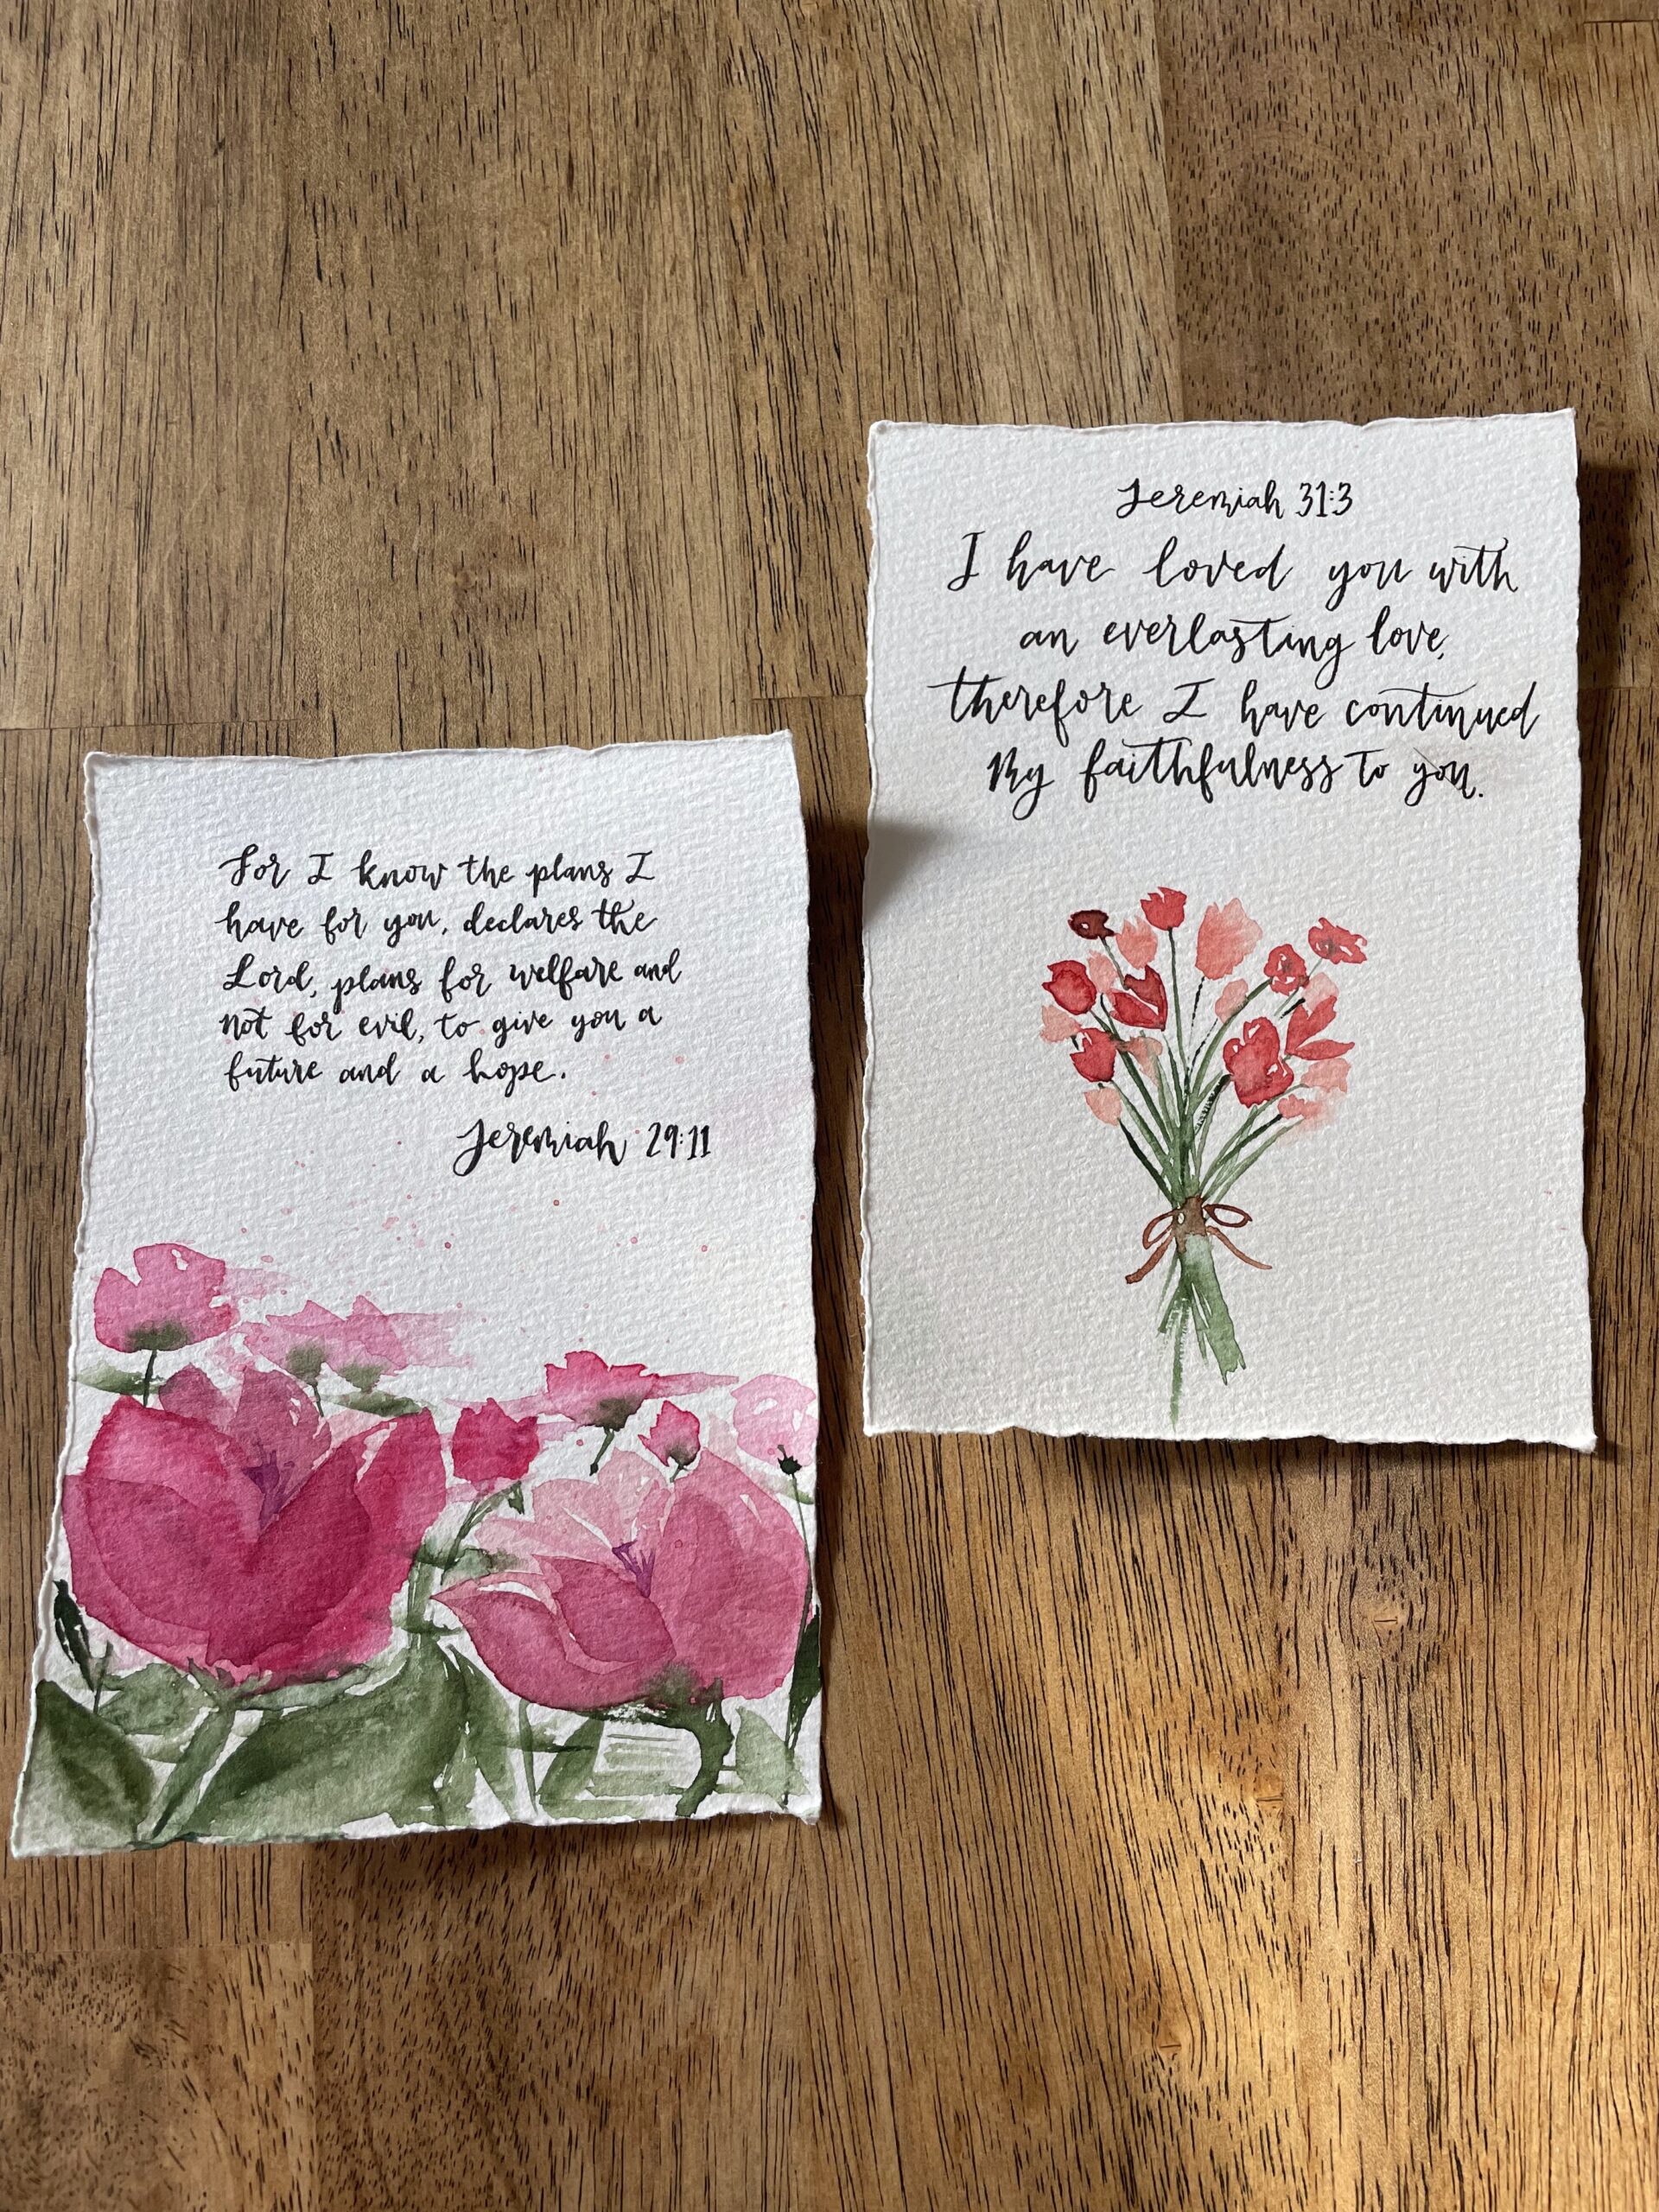 For I know the plans I
have for you, declares the
Lord, plans for welfare and
not for evil, to give you a
future and a hope.
Jeremiah 29:11
Jeremiah 31:3
I have loved you with
an everlasting love,
therefore I have continued
My faithfulness to you.